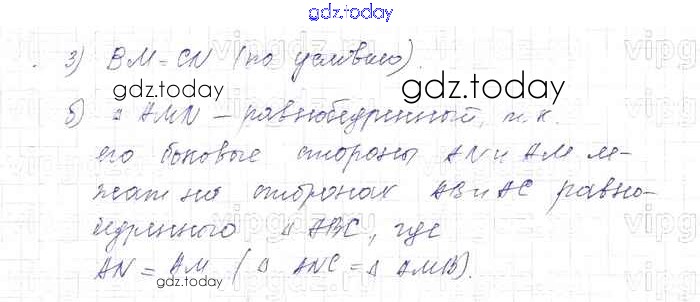 gdz.today
3) BM = CN (по условию).
gdz.today
б) △ AMN – равнобедренный, т. к.
его боковые стороны AN и AM ле-
жат на сторонах AB и AC равно-
бедренного △ ABC, где
AN = AM (△ ANC = △ AMB).
gdz.today